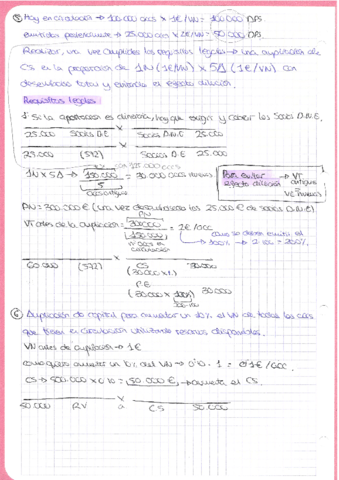 ⑤ Hoy en circulación → 100.000 accs × 1€/VN = 100.000
emitidas posteriormente → 25.000 accs × 2€/VN = 50.000
Realizar, una vez cumplidos los requisitos legales → una ampliación de
CS en la proporción de 1N (1€/VN) × 5A (1€/VN) con
desembolso total y evitando el efecto dilución.
Requisitos legales
1 Si la aportación es dineraria, hay que exigir y cobrar los Socios D.N.E.
x
25.000 Socios D.E. Socios D.N.E 25.000
x
25.000 (572) Socios D.E 25.000
1N × 5A → 150.000 = 30.000 accs nuevas
5
Para evitar → VT
efecto dilución
PN = 300.000 € (una vez desembolsados los 25.000 € de socios D.N.E)
PN
VT antes de la ampliación = 300.000 = 2€/acc
150.000
100% → 2·100 = 200%
x
60.000 (572) CS 30.000
(30.000 × 1)
P.E 30.000
⑥ Ampliación de capital para aumentar un 10% el VN de todas las accs
que tiene en circulación utilizando reservas disponibles.
VN antes de ampliación → 1€
como quiero aumentar un 10% del VN → 0'10 · 1 = 0'1€/acc
CS → 500.000 × 0'10 = 50.000 €, → aumenta el CS.
x
50.000 RV a CS 50.000